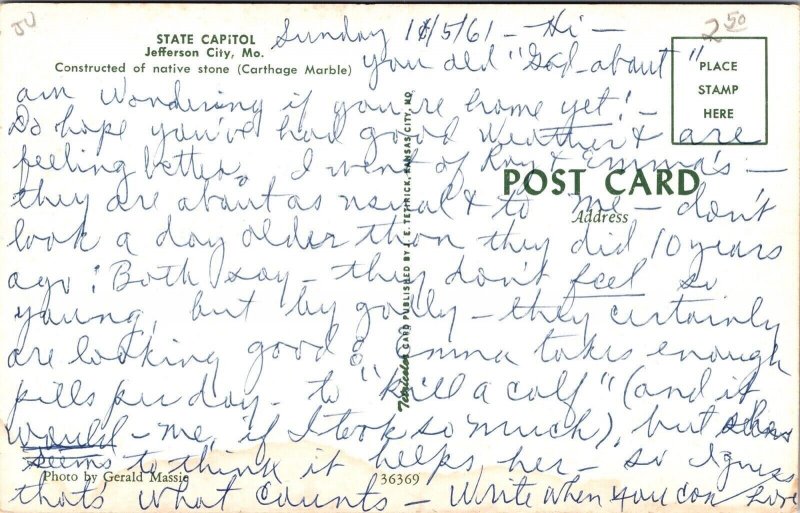 JU
2 50
STATE CAPITOL
Jefferson City, Mo.
Constructed of native stone (Carthage Marble)
PLACE
STAMP
HERE
POST CARD
Address
Tetricolor CARD PUBLISHED BY J. E. TETIRICK, KANSAS CITY, MO.
Sunday 1/5/61 - Hi -
you old "Gad-about"
am wondering if you're home yet! -
Do hope you've had good weather & are
feeling better. I went of Ray & Emma's -
they are about as usual & to me - don't
look a day older than they did 10 years
ago! Both say - they don't feel so
young, but by golly - they certainly
are looking good! Emma takes enough
pills per day - to "kill a calf" (and it
would - me, if I took so much), but she
seems to think it helps her - so I guess
thats what counts - Write when you can Love
Photo by Gerald Massie
36369